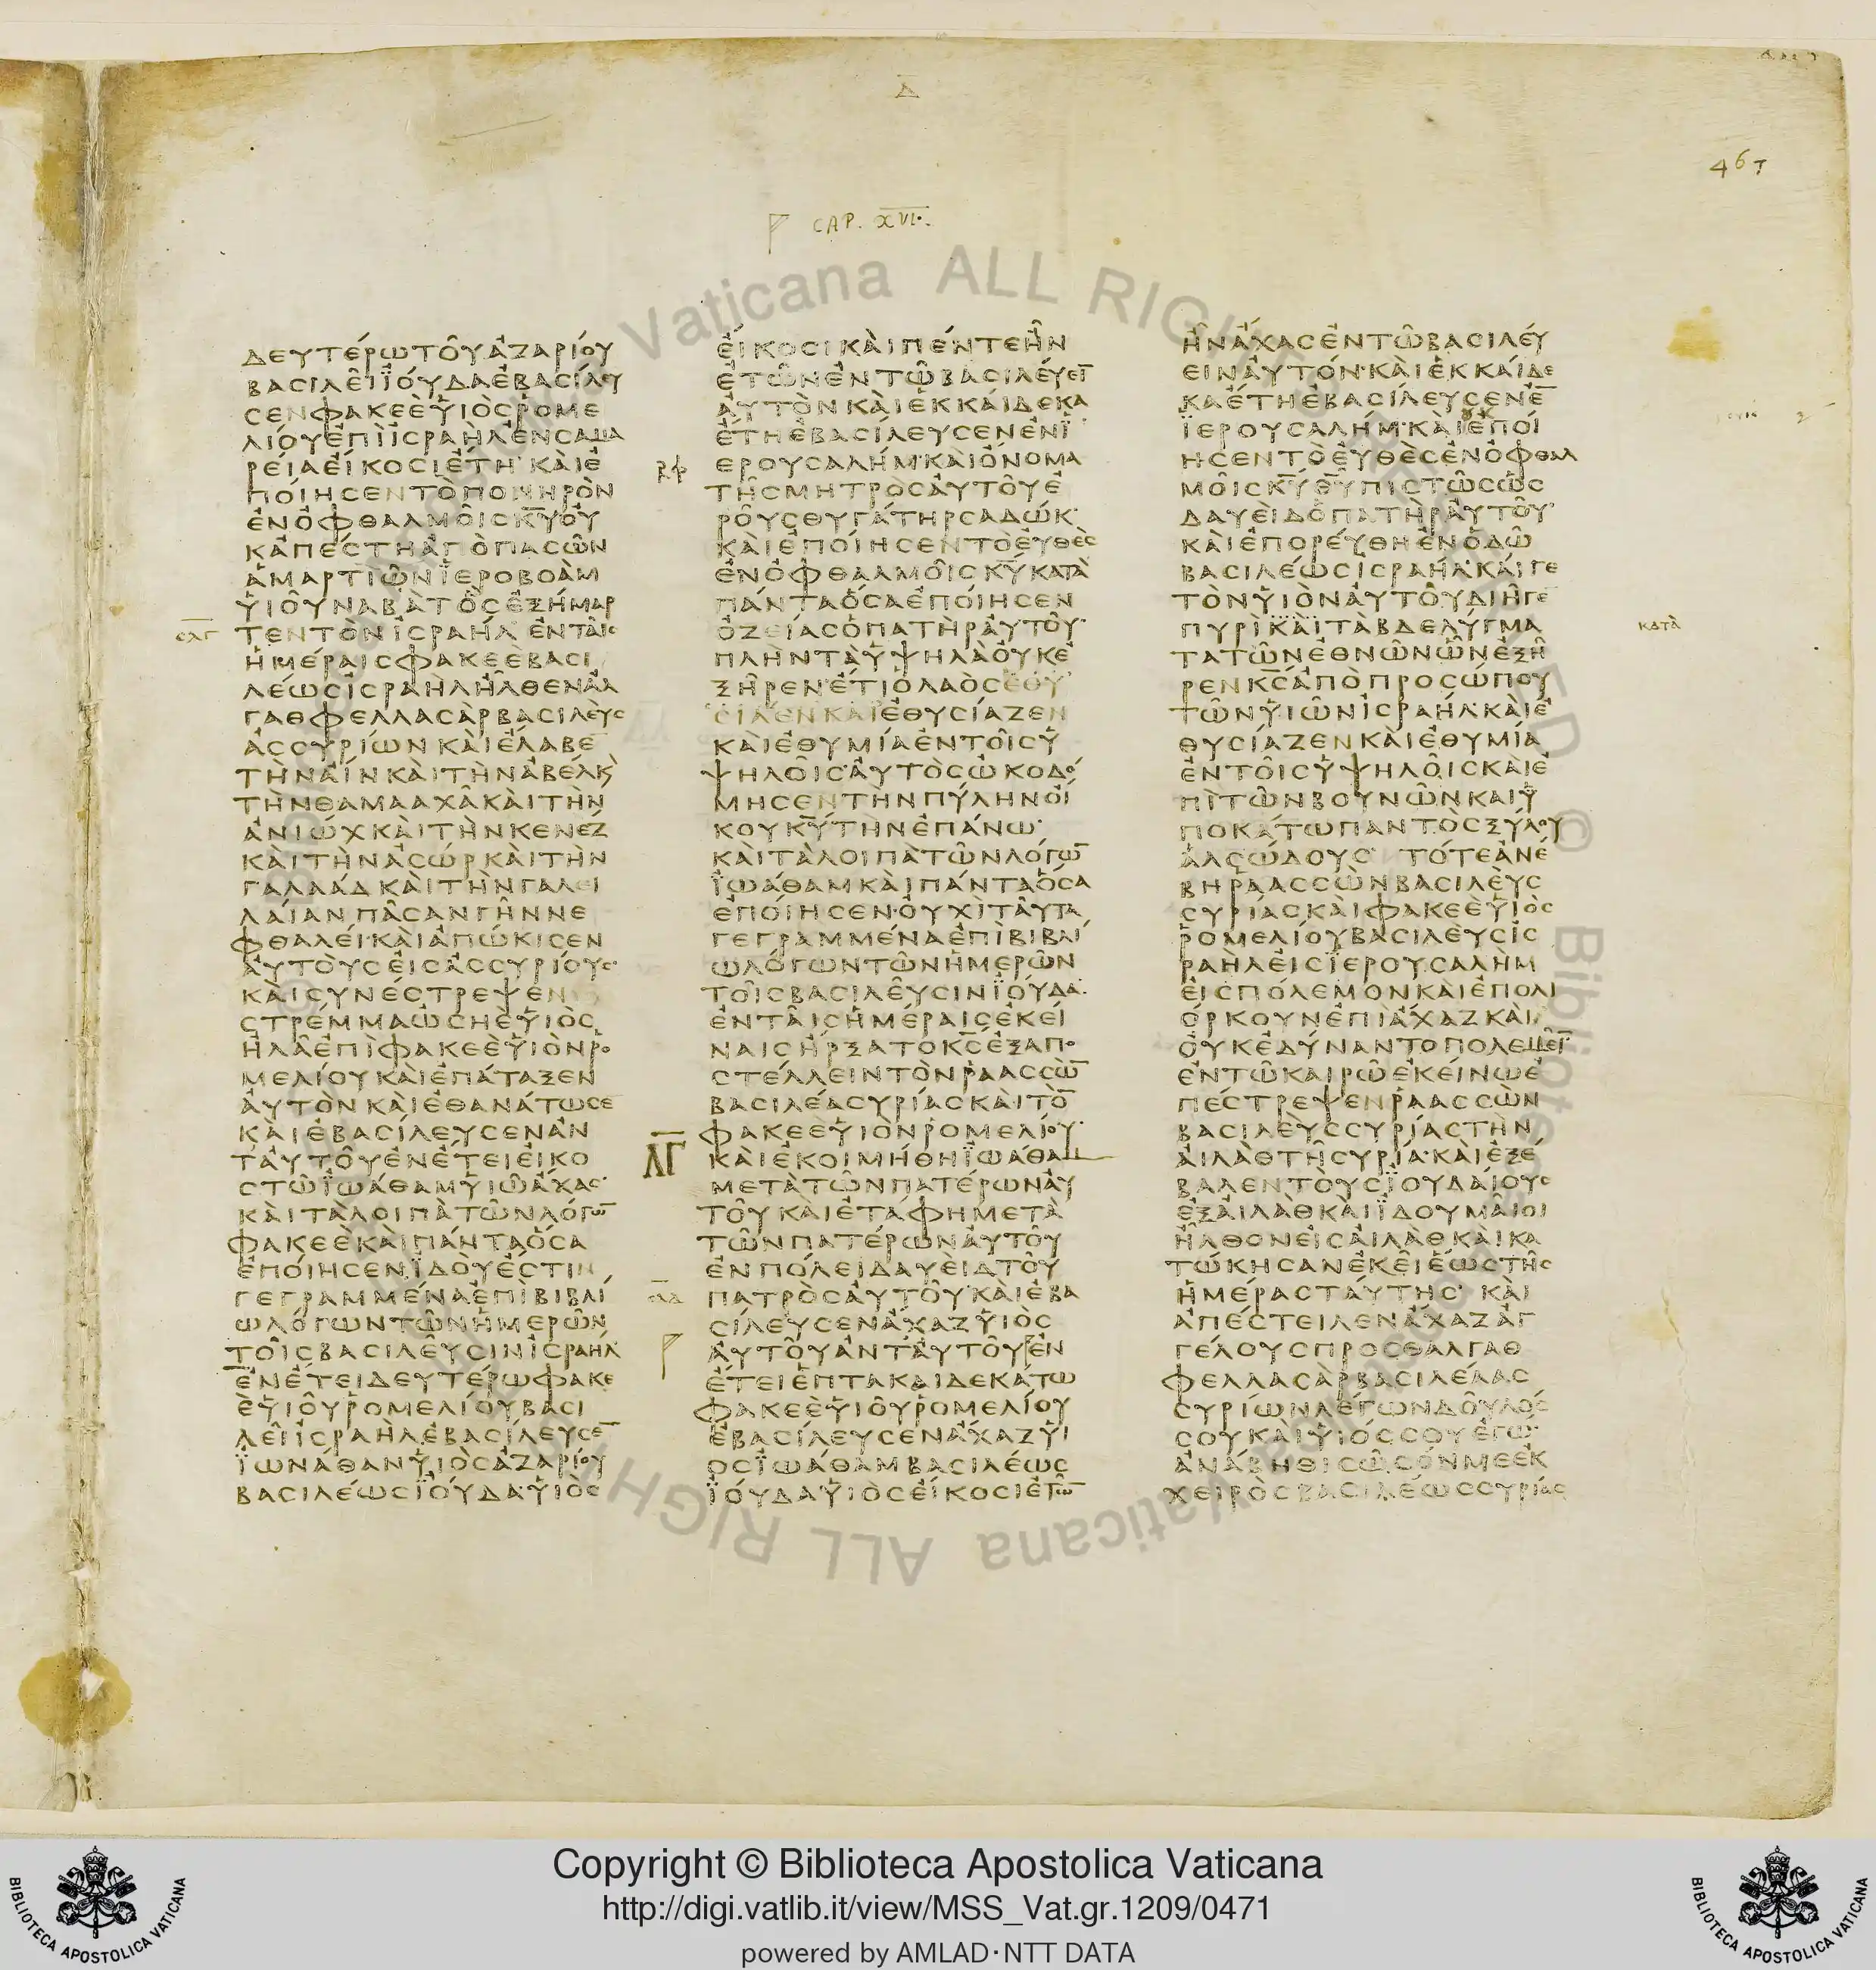 Δ
467
CAP. XVI.
ΔΕΥΤΕΡΩΤΟΥΑΖΑΡΙΟΥ
ΒΑΣΙΛΕΙΙΟΥΔΑΕΒΑΣΙΛΕΥ
ΣΕΝΦΑΚΕΕΥΙΟΣΡΟΜΕ
ΛΙΟΥΕΠΙΙΣΡΑΗΛΕΝΣΑΜΑ
ΡΕΙΑΕΙΚΟΣΙΕΤΗ ΚΑΙΕ
ΠΟΙΗΣΕΝΤΟΠΟΝΗΡΟΝ
ΕΝΟΦΘΑΛΜΟΙΣΚΥΟΥ
ΚΑΠΕΣΤΗΑΠΟΠΑΣΩΝ
ΑΜΑΡΤΙΩΝΙΕΡΟΒΟΑΜ
ΥΙΟΥΝΑΒΑΤΟΣΕΞΗΜΑΡ
ΤΕΝΤΟΝΙΣΡΑΗΛ ΕΝΤΑΙΣ
ΗΜΕΡΑΙΣΦΑΚΕΕΒΑΣΙ
ΛΕΩΣΙΣΡΑΗΛΗΛΘΕΝΑΛ
ΓΑΘΦΕΛΛΑΣΑΡΒΑΣΙΛΕΥΣ
ΑΣΣΥΡΙΩΝ ΚΑΙΕΛΑΒΕ
ΤΗΝΑΙΝΚΑΙΤΗΝΑΒΕΛΚ
ΤΗΝΘΑΜΑΑΧΑΚΑΙΤΗΝ
ΑΝΙΩΧΚΑΙΤΗΝΚΕΝΕΖ
ΚΑΙΤΗΝΑΣΩΡΚΑΙΤΗΝ
ΓΑΛΑΑΔΚΑΙΤΗΝΓΑΛΕΙ
ΛΑΙΑΝΠΑΣΑΝΓΗΝΝΕ
ΦΘΑΛΕΙ·ΚΑΙΑΠΩΚΙΣΕΝ
ΑΥΤΟΥΣΕΙΣΑΣΣΥΡΙΟΥΣ·
ΚΑΙΣΥΝΕΣΤΡΕΨΕΝ
ΣΤΡΕΜΜΑΩΣΗΕΥΙΟΣ
ΗΛΑΕΠΙΦΑΚΕΕΥΙΟΝΡΟ
ΜΕΛΙΟΥΚΑΙΕΠΑΤΑΞΕΝ
ΑΥΤΟΝΚΑΙΕΘΑΝΑΤΩΣΕ
ΚΑΙΕΒΑΣΙΛΕΥΣΕΝΑΝ
ΤΑΥΤΟΥΕΝΕΤΕΙΕΙΚΟ
ΣΤΩΙΩΑΘΑΜΥΙΩΑΧΑΣ·
ΚΑΙΤΑΛΟΙΠΑΤΩΝΛΟΓΩ
ΦΑΚΕΕΚΑΙΠΑΝΤΑΟΣΑ
ΕΠΟΙΗΣΕΝ.ΙΔΟΥΕΣΤΙΝ
ΓΕΓΡΑΜΜΕΝΑΕΠΙΒΙΒΛΙ
ΩΛΟΓΩΝΤΩΝΗΜΕΡΩΝ
ΤΟΙΣΒΑΣΙΛΕΥΣΙΝΙΣΡΑΗΛ
ΕΝΕΤΕΙΔΕΥΤΕΡΩΦΑΚΕ
ΕΥΙΟΥΡΟΜΕΛΙΟΥΒΑΣΙ
ΛΕΙΙΣΡΑΗΛΕΒΑΣΙΛΕΥΣΕ
ΙΩΝΑΘΑΝΥΙΟΣΑΖΑΡΙΟΥ
ΒΑΣΙΛΕΩΣΙΟΥΔΑ·ΥΙΟΣ
ΕΙΚΟΣΙΚΑΙΠΕΝΤΕΗΝ
ΕΤΩΝΕΝΤΩΒΑΣΙΛΕΥΕΙ
ΑΥΤΟΝΚΑΙΕΚΚΑΙΔΕΚΑ
ΕΤΗΕΒΑΣΙΛΕΥΣΕΝΕΝΙ
ΕΡΟΥΣΑΛΗΜ·ΚΑΙΟΝΟΜΑ
ΤΗΣΜΗΤΡΟΣΑΥΤΟΥΕ
ΡΟΥΣΘΥΓΑΤΗΡΣΑΔΩΚ·
ΚΑΙΕΠΟΙΗΣΕΝΤΟΕΥΘΕΣ
ΕΝΟΦΘΑΛΜΟΙΣΚΥΚΑΤΑ
ΠΑΝΤΑΟΣΑΕΠΟΙΗΣΕΝ
ΟΖΕΙΑΣΟΠΑΤΗΡΑΥΤΟΥ·
ΠΛΗΝΤΑΥΨΗΛΑΟΥΚΕ
ΞΗΡΕΝ·ΕΤΙΟΛΑΟΣΕΘΥ
ΣΙΑΣΕΝΚΑΙΕΘΥΣΙΑΖΕΝ
ΚΑΙΕΘΥΜΙΑΕΝΤΟΙΣΥ
ΨΗΛΟΙΣ·ΑΥΤΟΣΩΚΟΔΟ
ΜΗΣΕΝΤΗΝΠΥΛΗΝΟΙ
ΚΟΥΚΥΤΗΝΕΠΑΝΩ·
ΚΑΙΤΑΛΟΙΠΑΤΩΝΛΟΓΩ
ΙΩΑΘΑΜΚΑΙΠΑΝΤΑΟΣΑ
ΕΠΟΙΗΣΕΝ·ΟΥΧΙΤΑΥΤΑ
ΓΕΓΡΑΜΜΕΝΑΕΠΙΒΙΒΛΙ
ΩΛΟΓΩΝΤΩΝΗΜΕΡΩΝ
ΤΟΙΣΒΑΣΙΛΕΥΣΙΝΙΟΥΔΑ·
ΕΝΤΑΙΣΗΜΕΡΑΙΣΕΚΕΙ
ΝΑΙΣΗΡΞΑΤΟΚΣΕΞΑΠΟ
ΣΤΕΛΛΕΙΝΤΟΝΡΑΑΣΣΩ
ΒΑΣΙΛΕΑΣΥΡΙΑΣΚΑΙΤΟ
ΦΑΚΕΕΥΙΟΝΡΟΜΕΛΙΟΥ·
ΛΓ
ΚΑΙΕΚΟΙΜΗΘΗΙΩΑΘΑΜ
ΜΕΤΑΤΩΝΠΑΤΕΡΩΝΑΥ
ΤΟΥΚΑΙΕΤΑΦΗΜΕΤΑ
ΤΩΝΠΑΤΕΡΩΝΑΥΤΟΥ
ΕΝΠΟΛΕΙΔΑΥΕΙΔΤΟΥ
ΠΑΤΡΟΣΑΥΤΟΥ·ΚΑΙΕΒΑ
ΣΙΛΕΥΣΕΝΑΧΑΖΥΙΟΣ
ΑΥΤΟΥΑΝΤΑΥΤΟΥΕΝ
ΕΤΕΙΕΠΤΑΚΑΙΔΕΚΑΤΩ
ΦΑΚΕΕΥΙΟΥΡΟΜΕΛΙΟΥ
ΕΒΑΣΙΛΕΥΣΕΝΑΧΑΖΥΙ
ΟΣΙΩΑΘΑΜΒΑΣΙΛΕΩΣ
ΙΟΥΔΑ·ΥΙΟΣΕΙΚΟΣΙΕΤΩ
ΗΝΑΧΑΣΕΝΤΩΒΑΣΙΛΕΥ
ΕΙΝΑΥΤΟΝ·ΚΑΙΕΚΚΑΙΔΕ
ΚΑΕΤΗΕΒΑΣΙΛΕΥΣΕΝΕ
ΙΕΡΟΥΣΑΛΗΜ·ΚΑΙΕΠΟΙ
ΗΣΕΝΤΟΕΥΘΕΣΕΝΟΦΘΑΛ
ΜΟΙΣΚΥΘΥΠΙΣΤΩΣΩΣ
ΔΑΥΕΙΔΟΠΑΤΗΡΑΥΤΟΥ·
ΚΑΙΕΠΟΡΕΥΘΗΕΝΟΔΩ
ΒΑΣΙΛΕΩΣΙΣΡΑΗΛ·ΚΑΙΓΕ
ΤΟΝΥΙΟΝΑΥΤΟΥΔΙΗΓΕ
ΠΥΡΙΚΑΙΤΑΒΔΕΛΥΓΜΑ
ΚΑΤΑ
ΤΑΤΩΝΕΘΝΩΝΩΝΕΞΗ
ΡΕΝΚΣΑΠΟΠΡΟΣΩΠΟΥ
ΤΩΝΥΙΩΝΙΣΡΑΗΛ·ΚΑΙΕ
ΘΥΣΙΑΖΕΝΚΑΙΕΘΥΜΙΑ
ΕΝΤΟΙΣΥΨΗΛΟΙΣΚΑΙΕ
ΠΙΤΩΝΒΟΥΝΩΝΚΑΙΥ
ΠΟΚΑΤΩΠΑΝΤΟΣΞΥΛΟΥ
ΑΛΣΩΔΟΥΣ ΤΟΤΕΑΝΕ
ΒΗΡΑΑΣΣΩΝΒΑΣΙΛΕΥΣ
ΣΥΡΙΑΣΚΑΙΦΑΚΕΕΥΙΟΣ
ΡΟΜΕΛΙΟΥΒΑΣΙΛΕΥΣΙΣ
ΡΑΗΛΕΙΣΙΕΡΟΥΣΑΛΗΜ
ΕΙΣΠΟΛΕΜΟΝΚΑΙΕΠΟΛΙ
ΟΡΚΟΥΝΕΠΙΑΧΑΖΚΑΙ
ΟΥΚΕΔΥΝΑΝΤΟΠΟΛΕΜΕΙ·
ΕΝΤΩΚΑΙΡΩΕΚΕΙΝΩΕ
ΠΕΣΤΡΕΨΕΝΡΑΑΣΣΩΝ
ΒΑΣΙΛΕΥΣΣΥΡΙΑΣΤΗΝ
ΑΙΛΑΘΤΗΣΥΡΙΑ·ΚΑΙΕΞΕ
ΒΑΛΕΝΤΟΥΣΙΟΥΔΑΙΟΥΣ
ΕΞΑΙΛΑΘΚΑΙΙΔΟΥΜΑΙΟΙ
ΗΛΘΟΝΕΙΣΑΙΛΑΘΚΑΙΚΑ
ΤΩΚΗΣΑΝΕΚΕΙΕΩΣΤΗΣ
ΗΜΕΡΑΣΤΑΥΤΗΣ· ΚΑΙ
ΑΠΕΣΤΕΙΛΕΝΑΧΑΖΑΓ
ΓΕΛΟΥΣΠΡΟΣΘΑΛΓΑΘ
ΦΕΛΛΑΣΑΡΒΑΣΙΛΕΑΑΣ
ΣΥΡΙΩΝΛΕΓΩΝΔΟΥΛΟΣ
ΣΟΥΚΑΙΥΙΟΣΣΟΥΕΓΩ·
ΑΝΑΒΗΘΙΣΩΣΟΝΜΕΕΚ
ΧΕΙΡΟΣΒΑΣΙΛΕΩΣΣΥΡΙΑΣ
Vaticana ALL RIGHTS RESERVED © Biblioteca Apostolica Vaticana ALL RIGH
Copyright © Biblioteca Apostolica Vaticana
http://digi.vatlib.it/view/MSS_Vat.gr.1209/0471
powered by AMLAD·NTT DATA
BIBLIOTECA APOSTOLICA VATICANA
BIBLIOTECA APOSTOLICA VATICANA